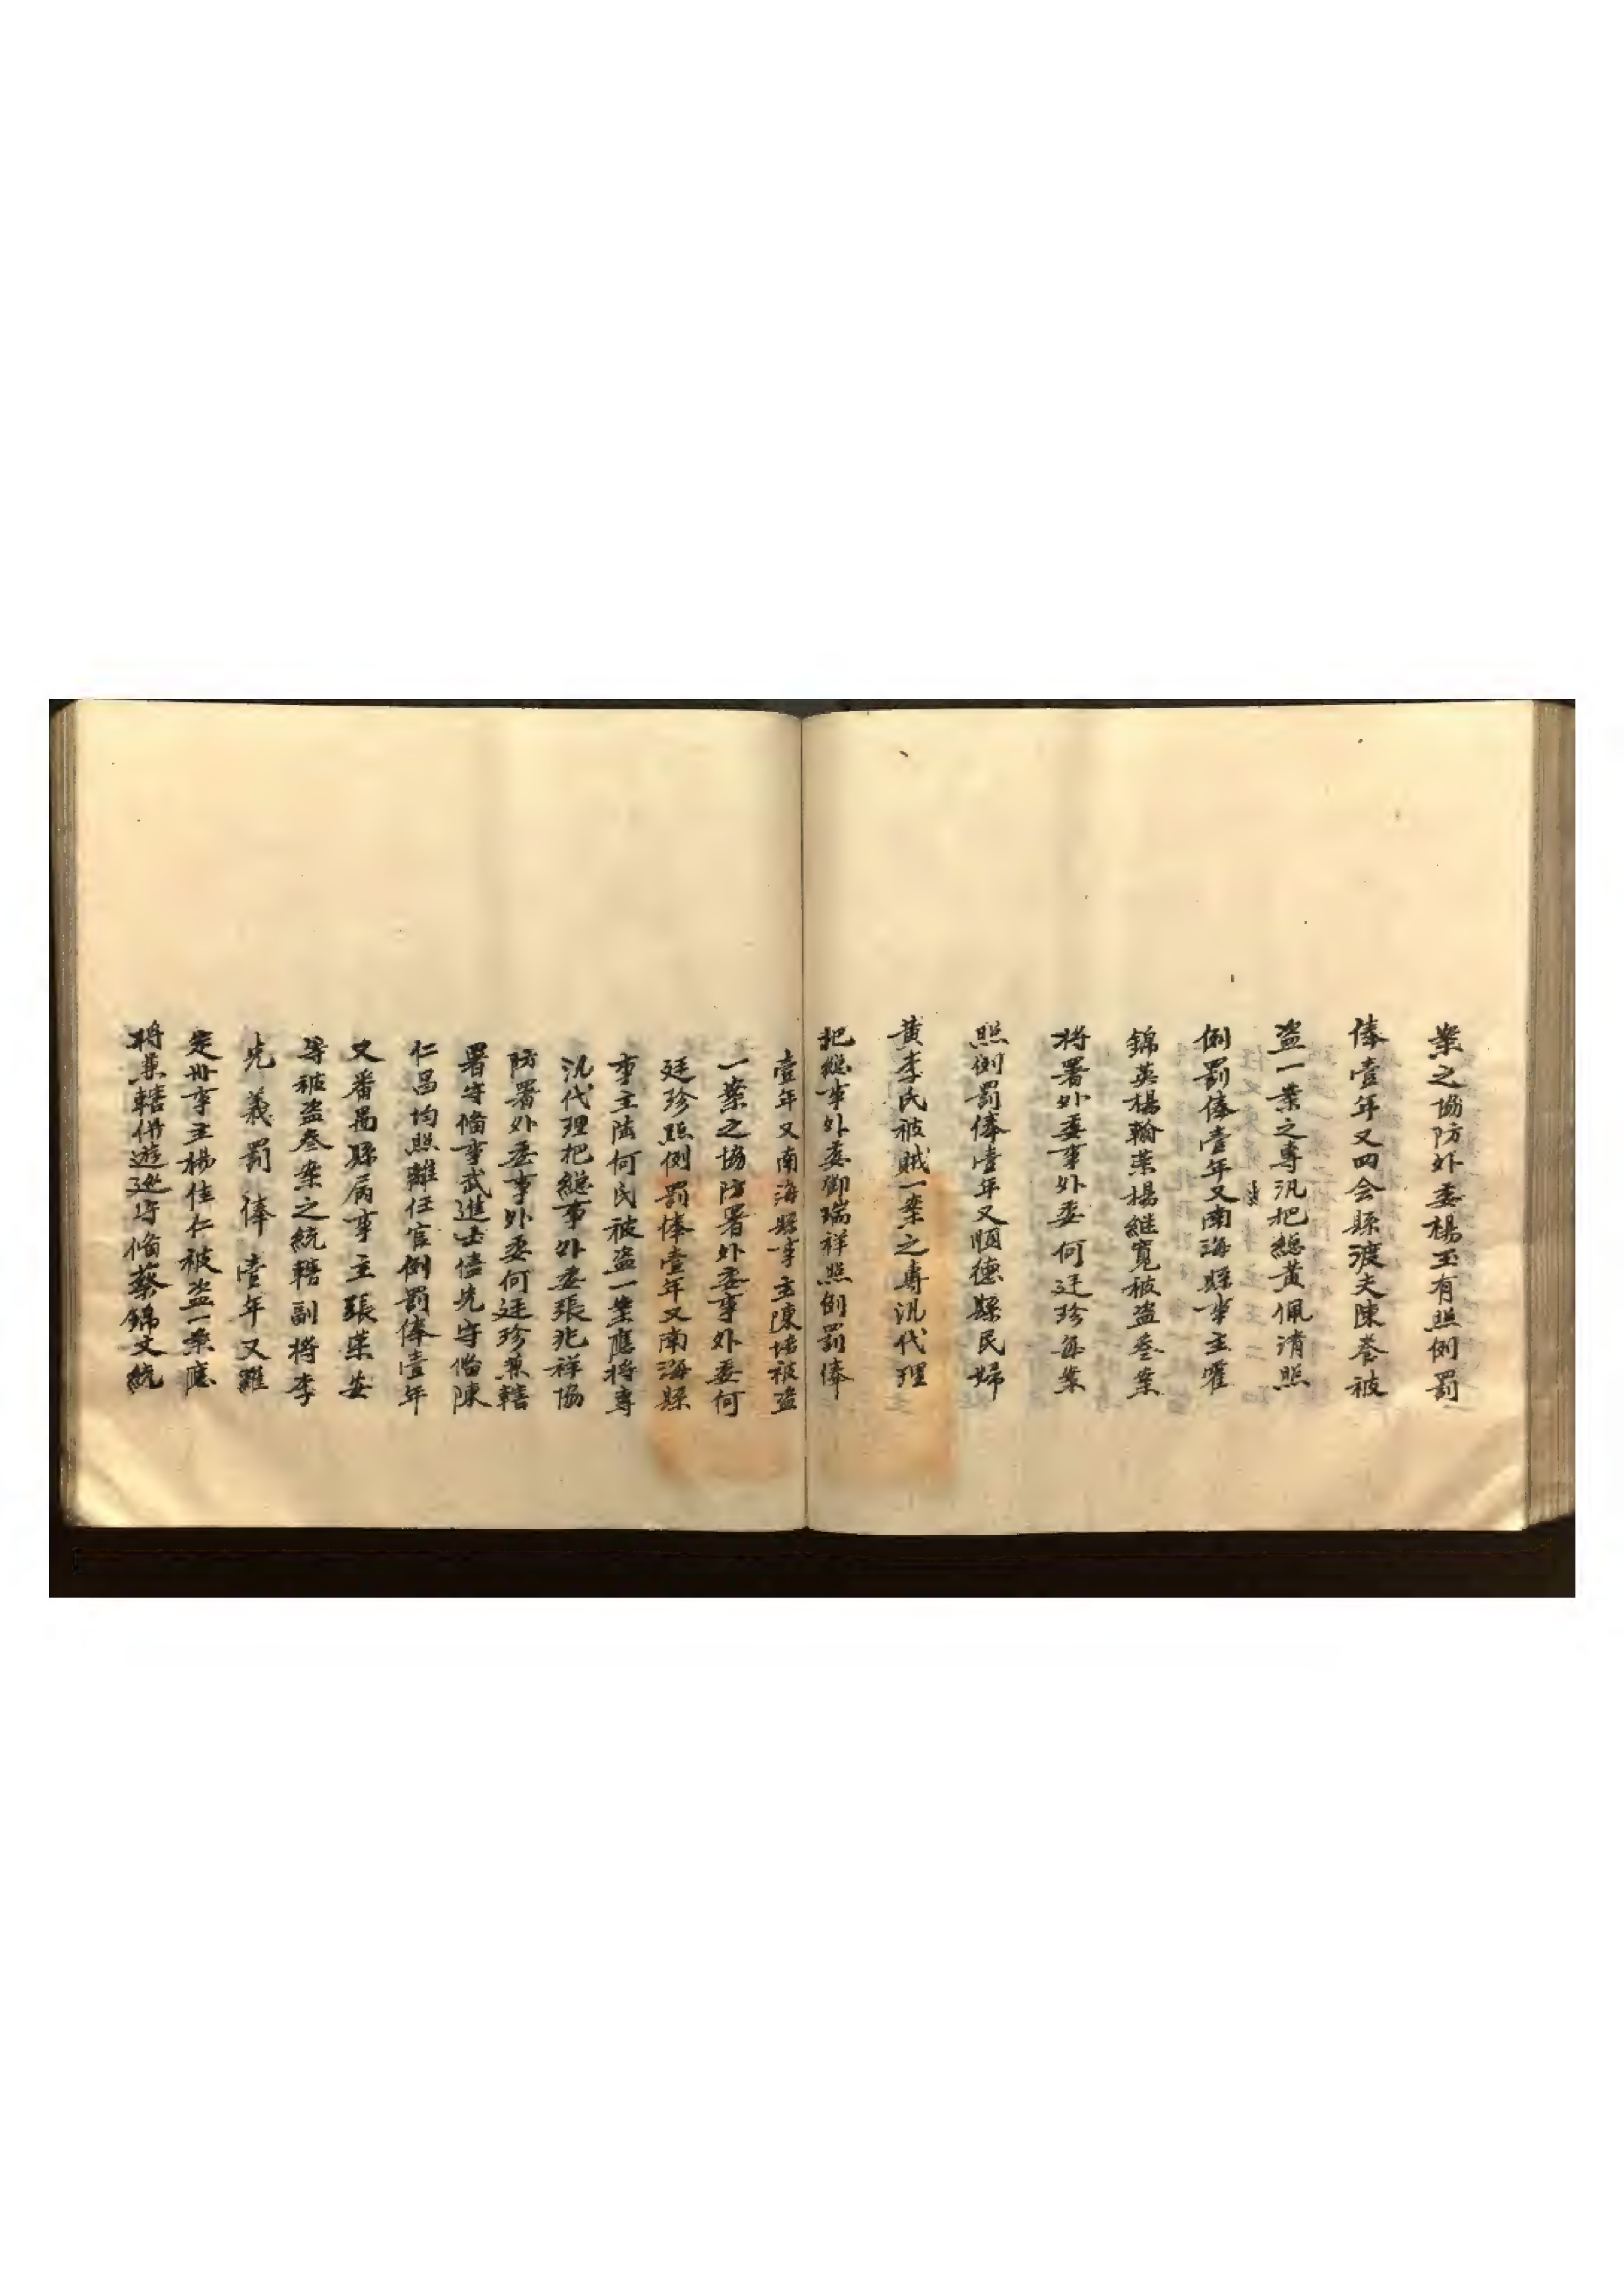 案之協防外委楊玉有照例罰
俸壹年又四会縣渡夫陳養被
盗一案之專汛把總黃佩清照
例罰俸壹年又南海縣事主霍
錦英楊翰葉楊継寬被盗叁案
将署外委事外委何廷珍每案
照例罰俸壹年又順德縣民婦
黃李氏被賊一案之專汛代理
把總事外委鄧瑞祥照例罰俸
壹年又南海縣事主陳培被盗
一案之協防署外委事外委何
廷珍照例罰俸壹年又南海縣
事主陆何氏被盗一案應将專
汛代理把總事外委張兆祥協
防署外委事外委何廷珍兼轄
署守備事武進士儘先守備陳
仁昌均照離任官例罰俸壹年
又番禺縣病事主張葉安
等被盗叁案之統轄副将李
先義罰俸壹年又羅
定州事主楊佳仁被盗一案應
将兼轄併遊廵守備蔡錦文統